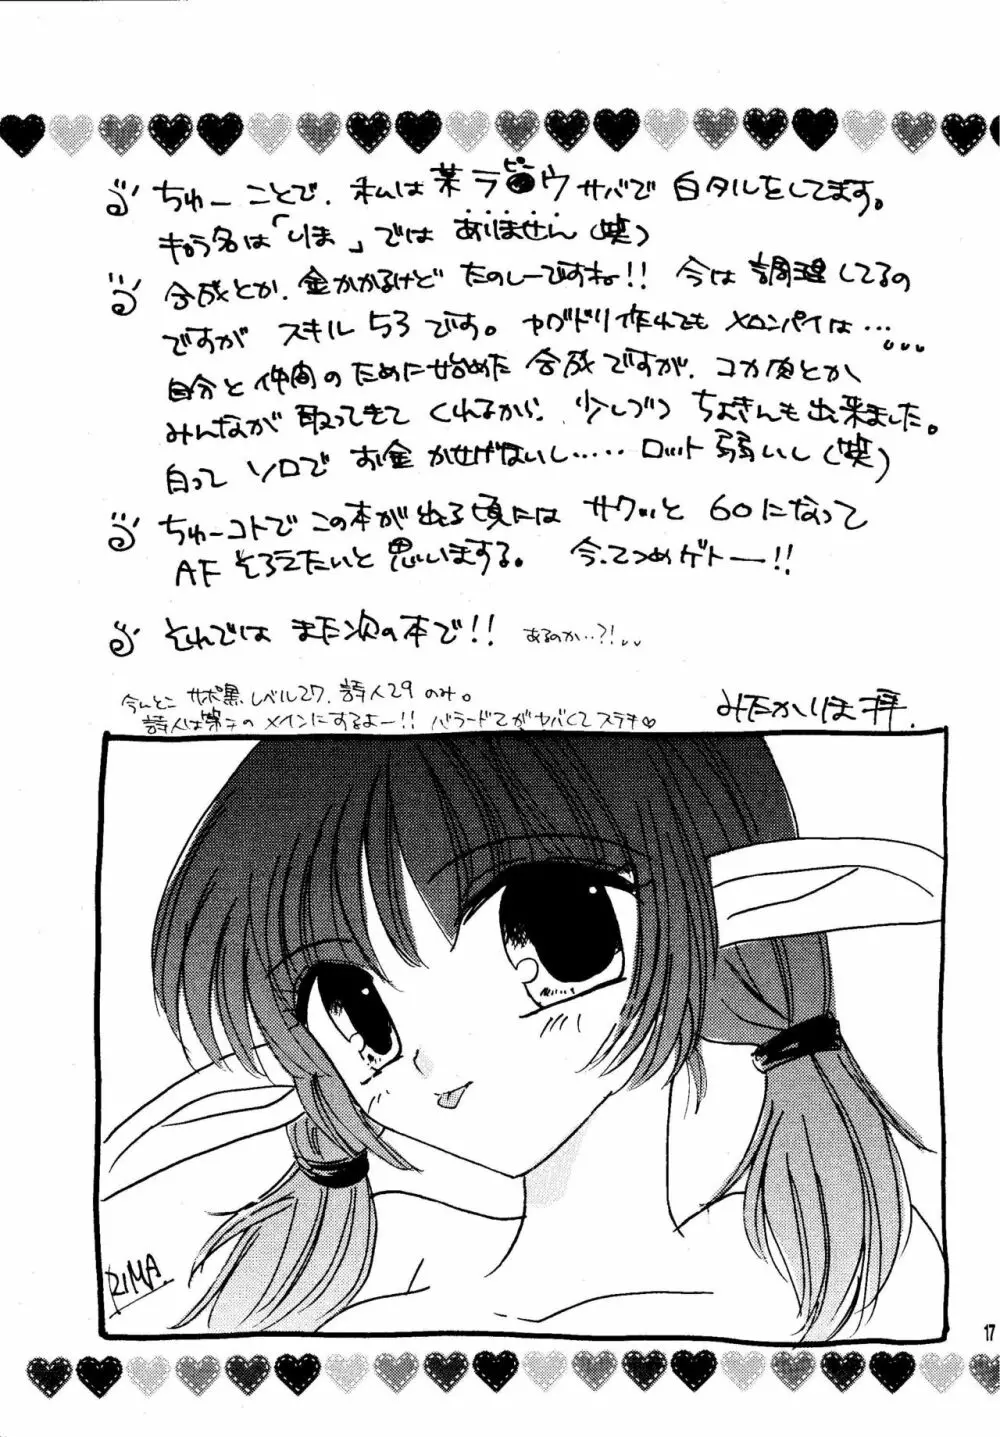 ちゅーことで、私は某ラ●ウサバで白タルをしてます。
ピー
キャラ名は「りま」ではありません(笑)
合成とか、金かかるけどたのしーですね!! 今は調理してるの
ですがスキル53です。ヤグドリ作れてもメロンパイは……
自分と仲間のために始めた合成ですが、コカ肉とか
みんなが取ってきてくれるから、少しづつちょきんも出来ました。
白ってソロでお金かせげないし……ロット弱いし(笑)
ちゅーコトでこの本が出る頃にはサクッと60になって
AFそろえたいと思いまする。 今、てつめゲトー!!
それではまた次の本で!! あるのか…?!
今んとこ サポ黒レベル27、詩人29のみ。
詩人は第二のメインにするよー!! バラードてがヤバくてステキ♡
みたかりま拝.
RIMA.
17